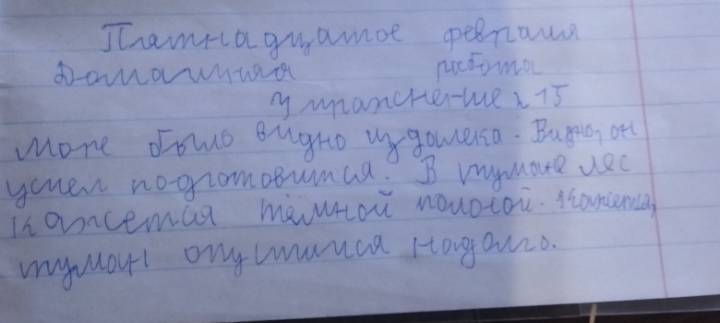 Пятнадцатое февраля
Домашняя работа
Упражнение 215
Море было видно издалека. Видно, он
успел подготовится. В тумане лес
кажется тёмной полосой. Кажется,
туман опустился надолго.